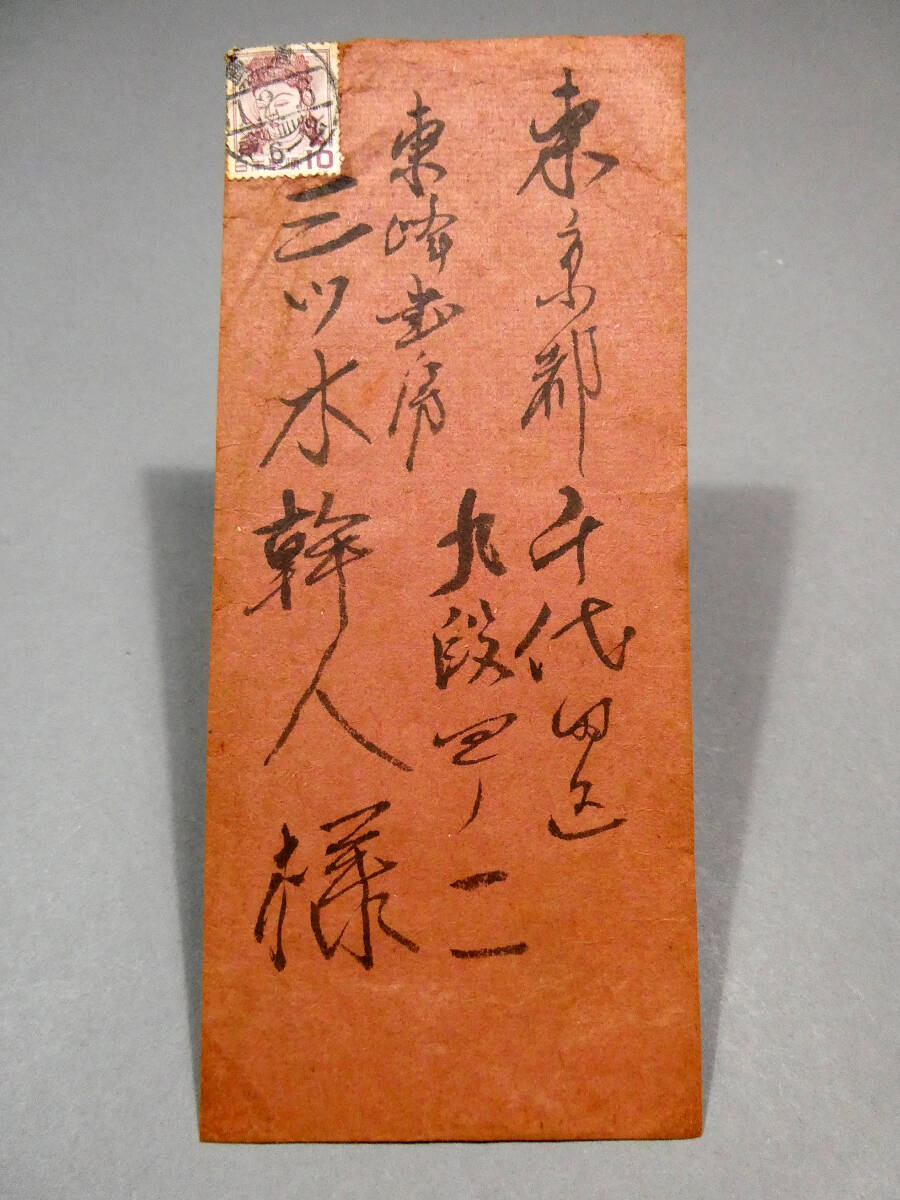 東京都千代田区
九段四ノ二
東峰書房
三ツ木幹人様
10